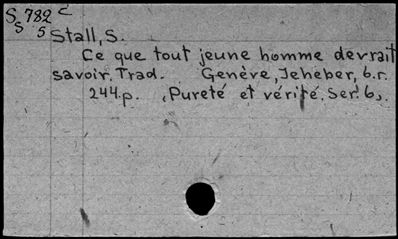 S.782 c
S 5
Stall, S.
Ce que tout jeune homme devrait
savoir. Trad. Genève, Jeheber, b.r.
244.p. (Pureté et vérité. Ser. 6).